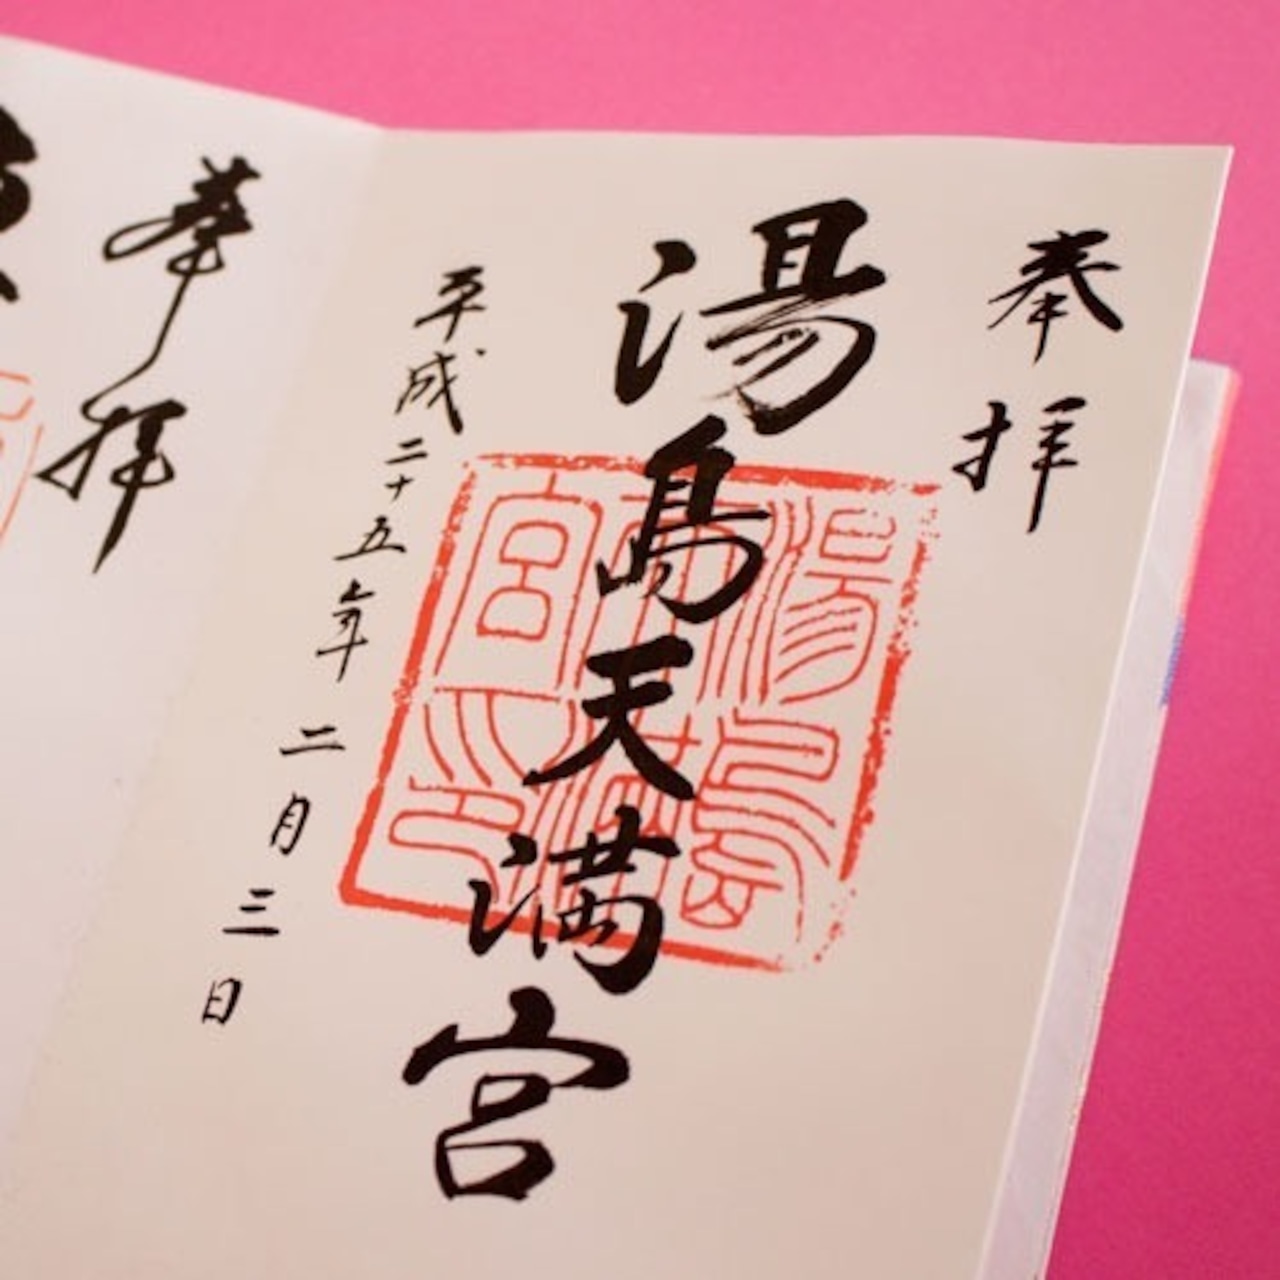 奉拝
湯島天満宮
平成二十五年二月三日
湯島天満宮印
奉拝